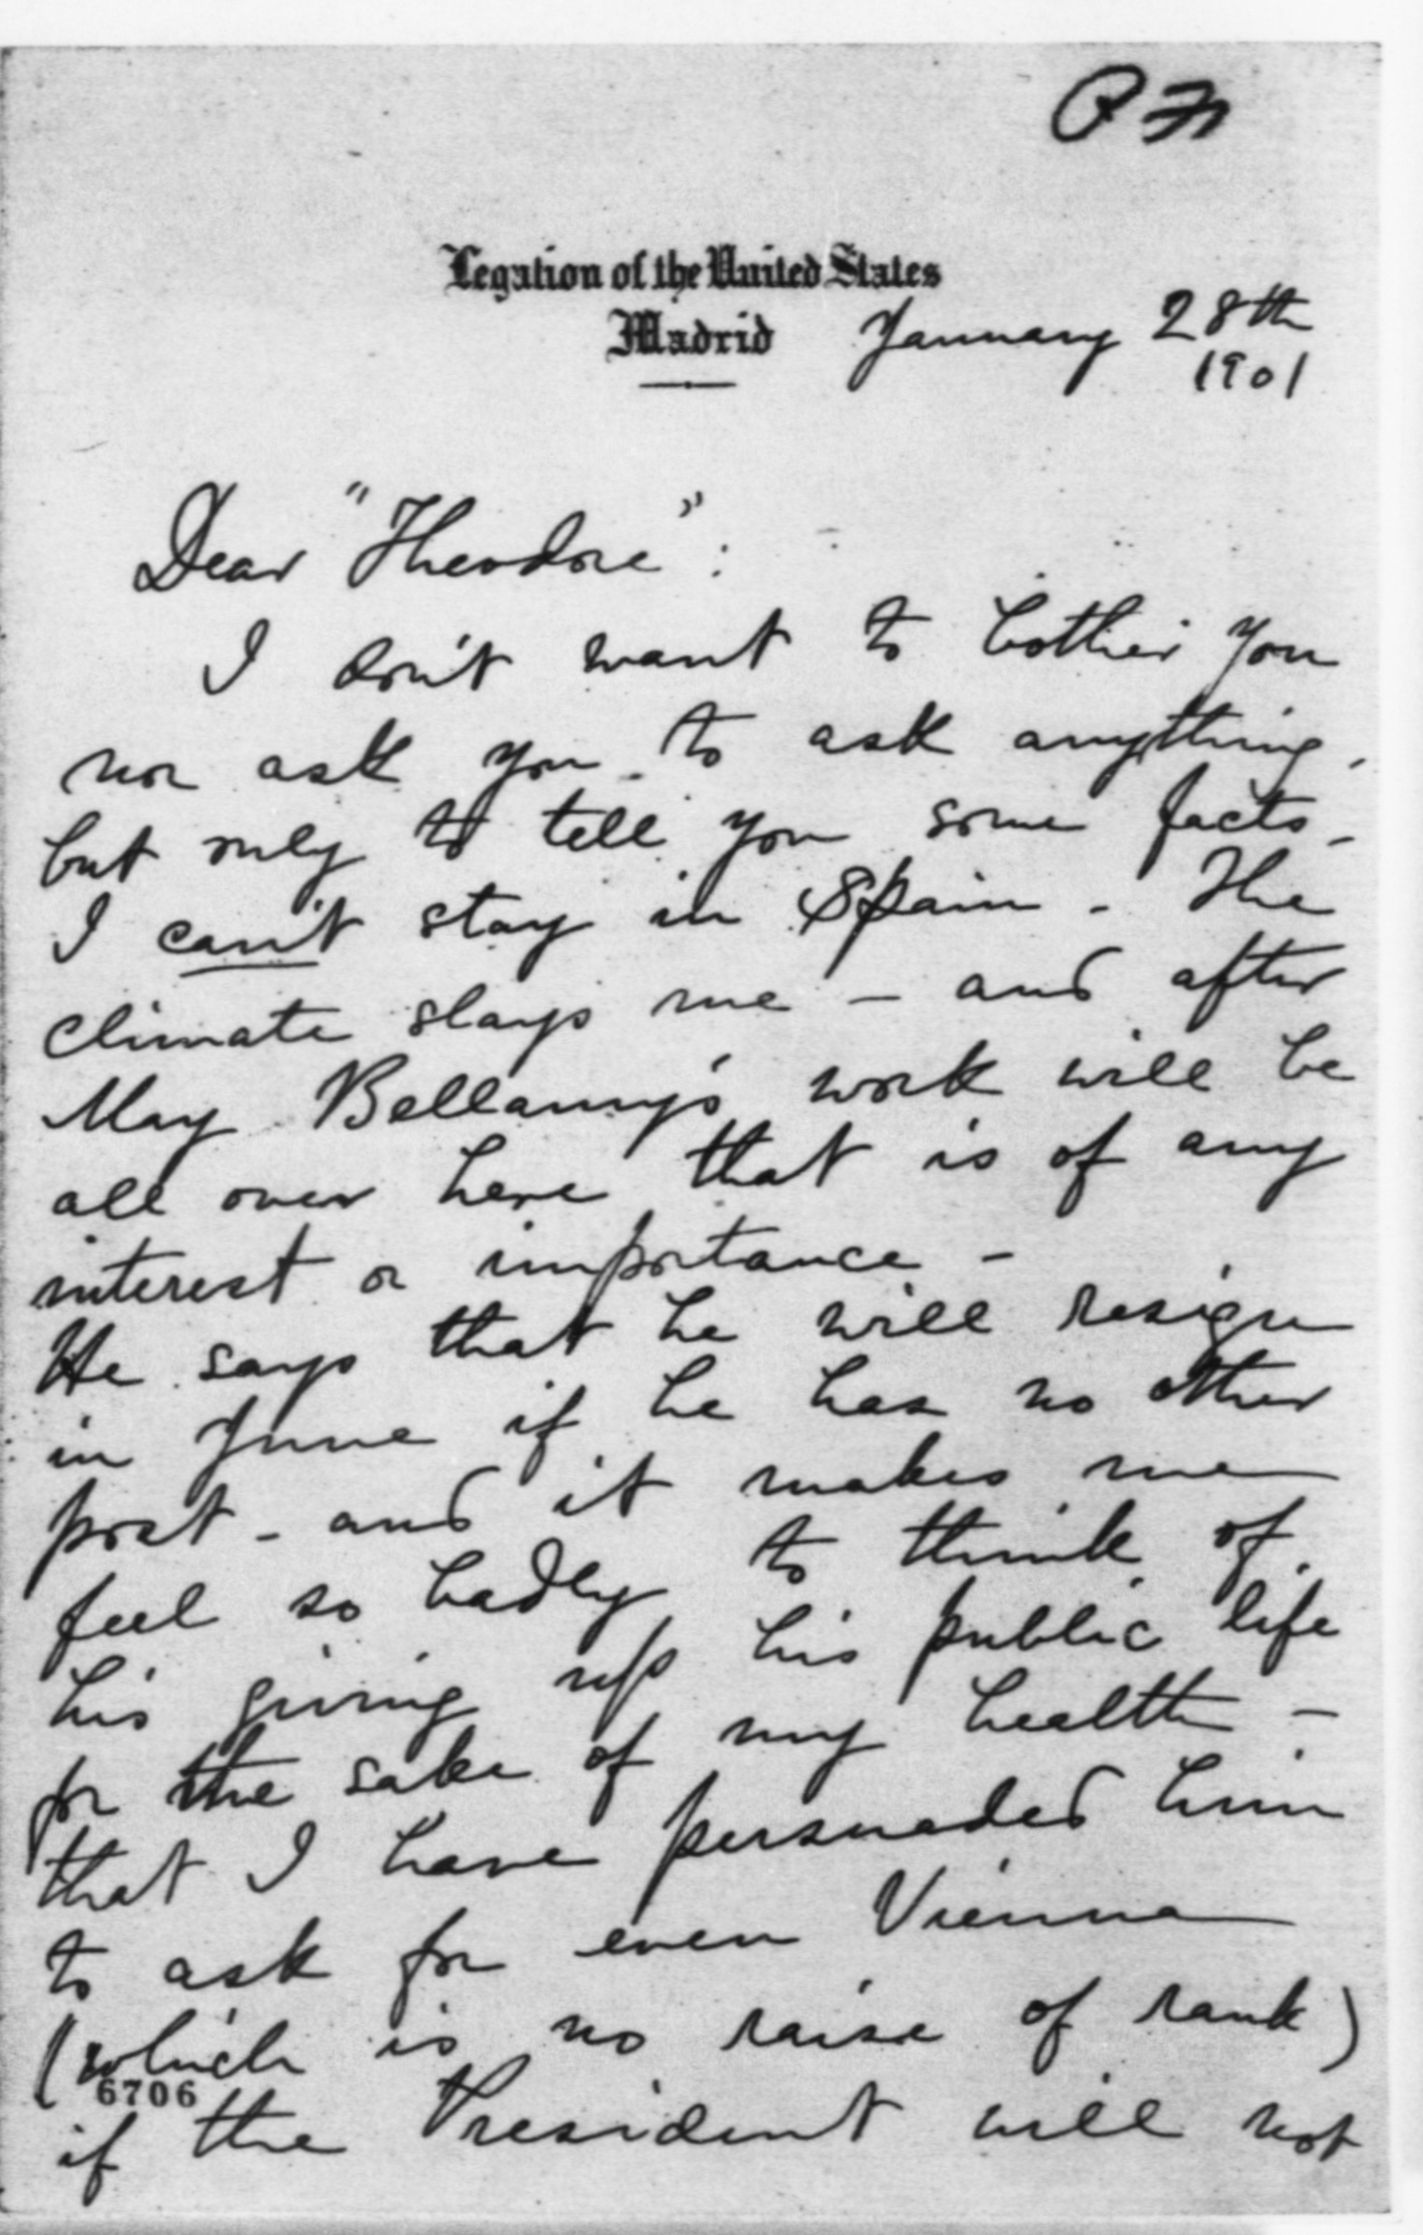 Legation of the United States
Madrid January 28th
1901
Dear "Theodore":
I don't want to bother you
nor ask you to ask anything,
but only to tell you some facts -
I can't stay in Spain - The
climate slays me - and after
May Bellamy's work will be
all over here that is of any
interest or importance -
He says that he will resign
in June if he has no other
post - and it makes me
feel so badly to think of
his giving up his public life
for the sake of my health -
that I have persuaded him
to ask for even Vienna
(which is no raise of rank)
6706
if the President will not